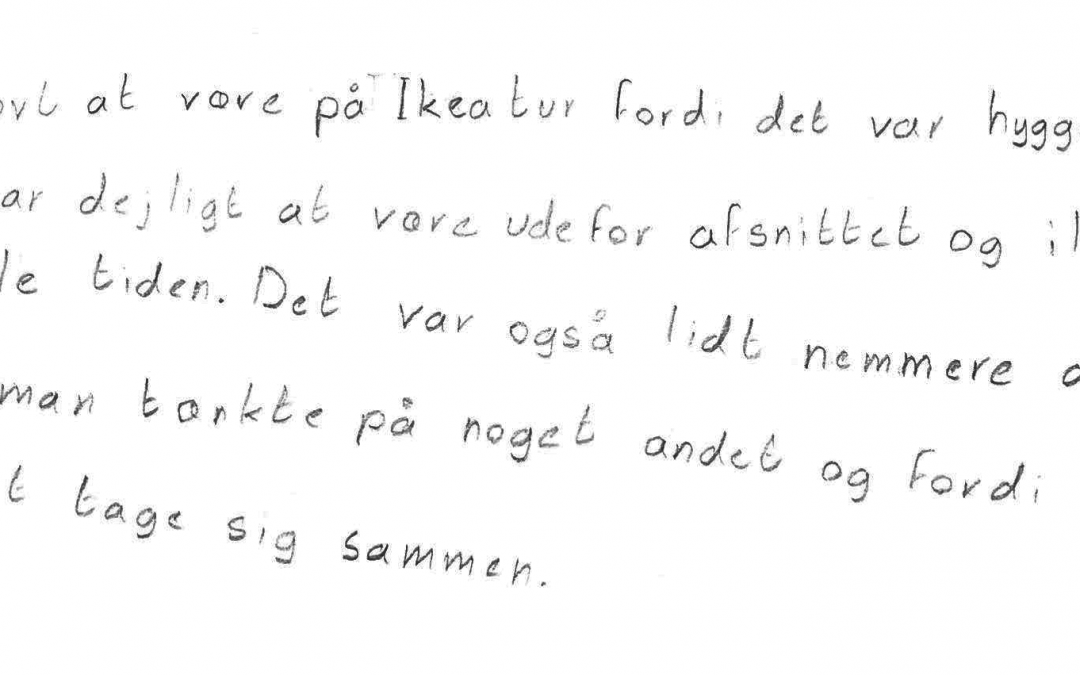 ovt at være på Ikeatur fordi det var hygg
ar dejligt at være udefor afsnittet og il
le tiden. Det var også lidt nemmere a
man tænkte på noget andet og fordi
t tage sig sammen.